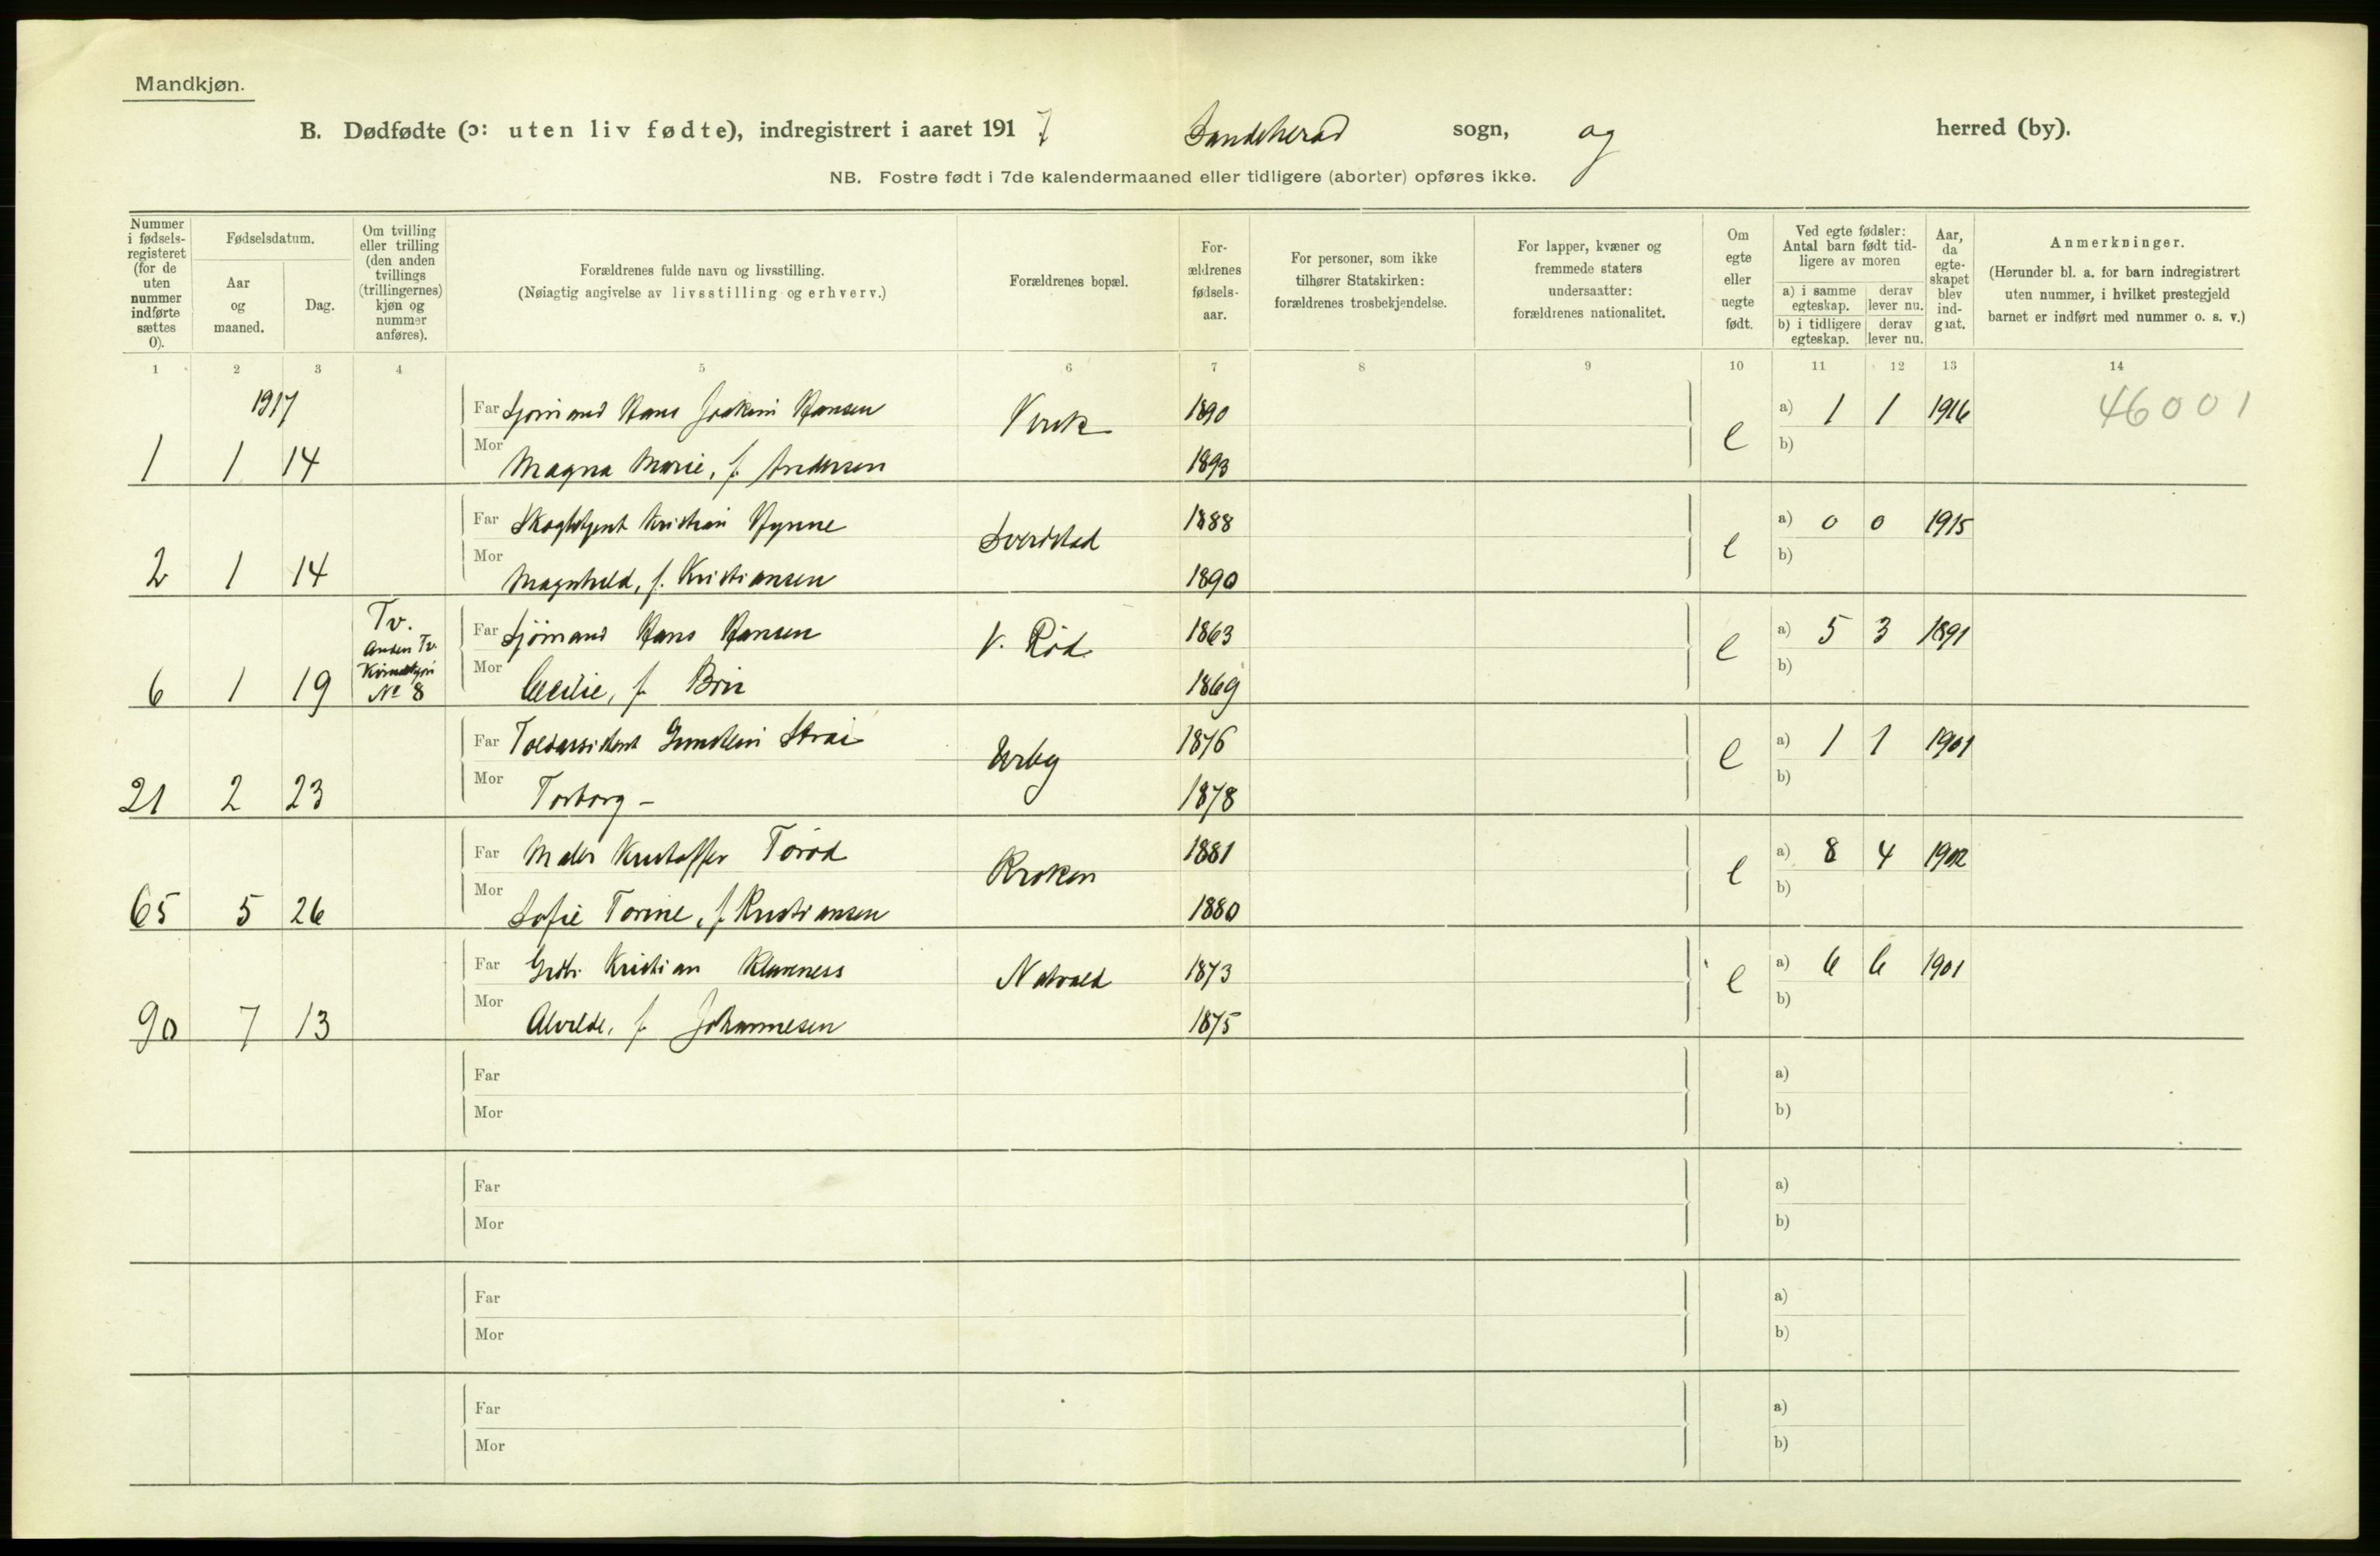 Mandkjøn.
B. Dødfødte (ɔ: uten liv fødte), indregistrert i aaret 1917 Sandeherad sogn, og herred (by).
NB. Fostre født i 7de kalendermaaned eller tidligere (aborter) opføres ikke.
Nummer i fødsels-registeret (for de uten nummer indførte sættes 0).
Fødselsdatum.
Aar og maaned.
Dag.
Om tvilling eller trilling (den anden tvillings (trillingernes) kjøn og nummer anføres).
Forældrenes fulde navn og livsstilling.
(Nøiagtig angivelse av livsstilling og erhverv.)
Forældrenes bopæl.
For-ældrenes fødsels-aar.
For personer, som ikke tilhører Statskirken: forældrenes trosbekjendelse.
For lapper, kvæner og fremmede staters undersaatter: forældrenes nationalitet.
Om egte eller uegte født.
Ved egte fødsler: Antal barn født tid-ligere av moren
a) i samme egteskap. derav lever nu.
b) i tidligere egteskap. derav lever nu.
Aar, da egte-skapet blev ind-gaat.
Anmerkninger.
(Herunder bl. a. for barn indregistrert uten nummer, i hvilket prestegjeld barnet er indført med nummer o. s. v.)
1 2 3 4 5 6 7 8 9 10 11 12 13 14
1917 Far Sjømand Hans Joakim Hansen 1890 a) 1 1 1916 46001
1 1 14 Mor Magna Marie, f. Andersen 1893 e b)
Far Kristian Hynne Sverdstad 1888 a) 0 0 1915
2 1 14 Mor Magnhild, f. Kristiansen 1890 e b)
Tv.
Anden Tv.
Far Sjömand Hans Hansen V. Röd 1863 a) 5 3 1891
6 1 19 No 8 Mor Cecilie, f. 1869 e b)
Far Toldassistent 1876 a) 1 1 1901
21 2 23 Mor Torborg - 1878 e b)
Far Maler Kristoffer Toröd Kroken 1881 a) 8 4 1902
65 5 26 Mor Sofie Torine, f. Kristiansen 1880 e b)
Far Grdbr. Kristian Klaveness 1873 a) 6 6 1901
90 7 13 Mor Alvilde, f. Johannesen 1875 e b)
Far a)
Mor b)
Far a)
Mor b)
Far a)
Mor b)
Far a)
Mor b)